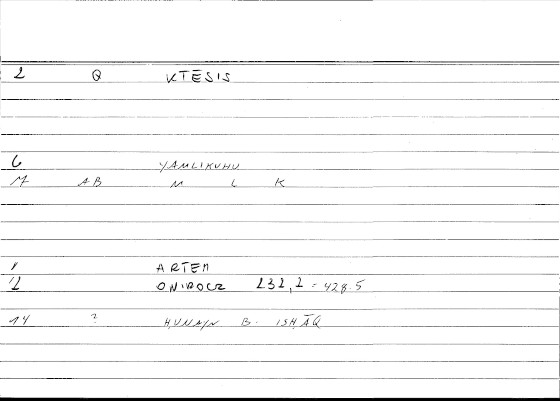 2 Q KTESIS
6 YAMLIKUHU
M AB M L K
8 ARTEM
12 ONIROCR 232,2 = 428.5
14 ? HUNAYN B. ISHĀQ